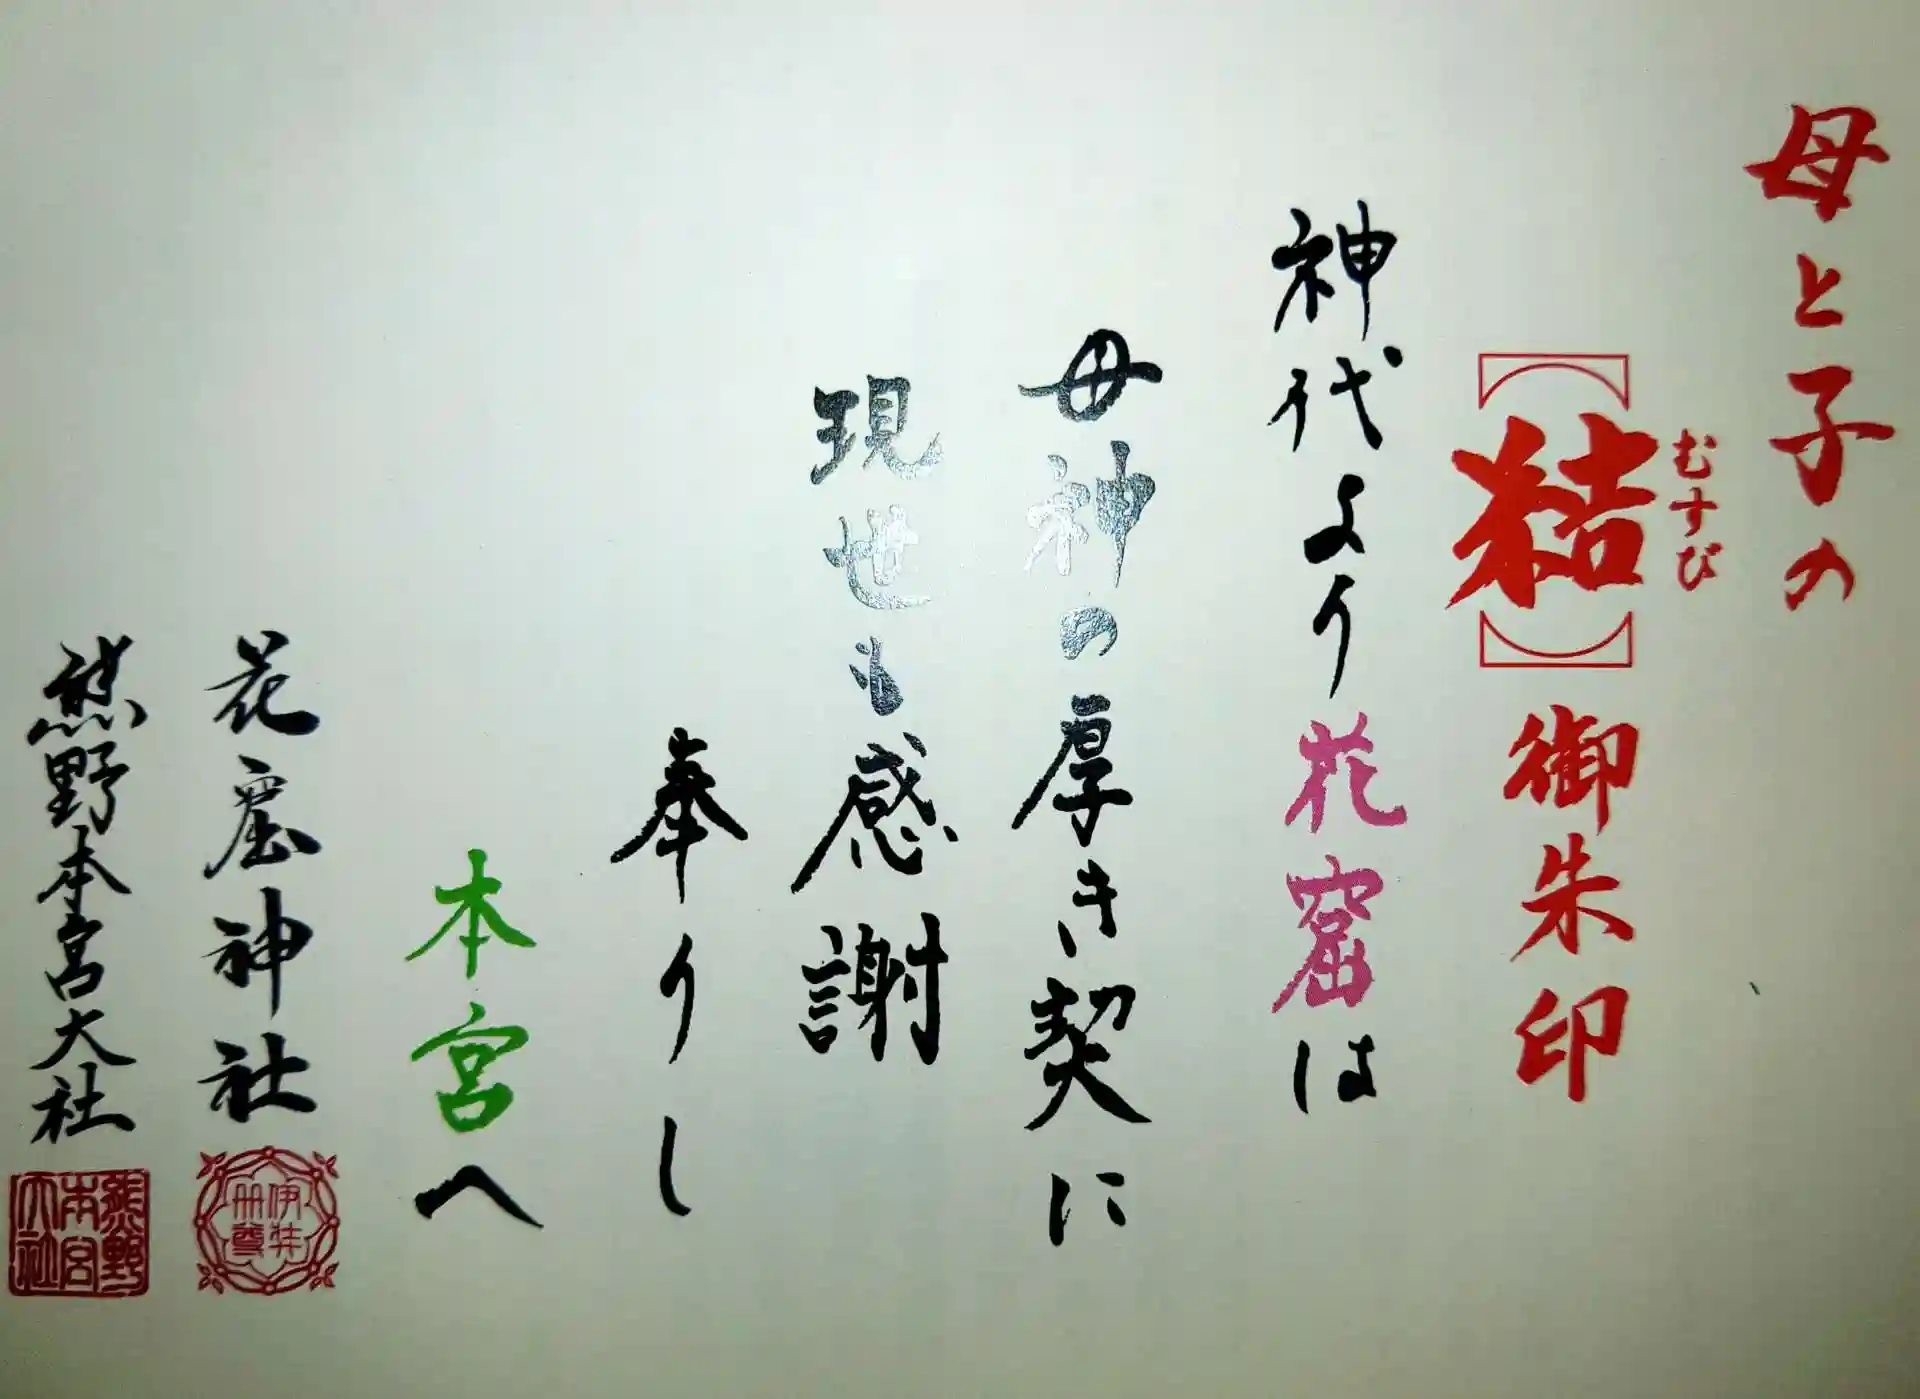 母と子の
【結】御朱印
むすび
神代より花窟は
母神の厚き契に
現世も感謝
奉りし
本宮へ
花窟神社
伊弉冊尊
熊野本宮大社
熊野本宮大社